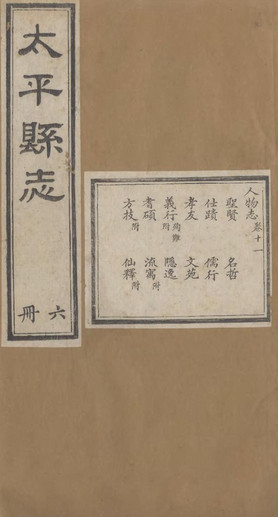 太平縣志
六冊
人物志 卷十一
聖賢 名哲
仕蹟 儒行
孝友 文苑
義行殉難附 隱逸
耆碩 流寓附
方技附 仙釋附